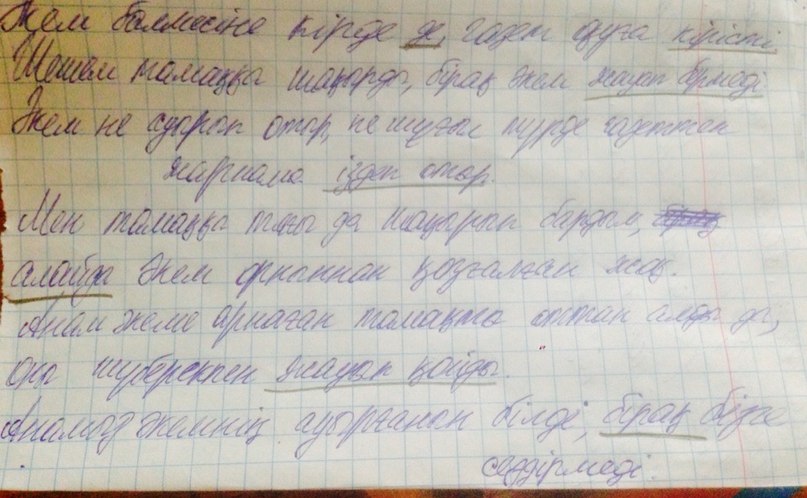 Әкем бөлмесіне кірде де, газет оқуға кірісті.
Шешем тамаққа шақырды, бірақ әкем жауап бермеді
Әкем не ауырып отыр, не шұғыл түрде газеттен
жарнама іздеп отыр.
Мен тамаққа тағы да шақырып бардым, бірақ
алайда әкем орнынан қозғалған жоқ.
Анам әкеме арнаған тамақты оттан алды да,
оны шүберекпен жауып қойды.
Анамыз әкемнің ауырғанын білді, бірақ бізге
сездірмеді.